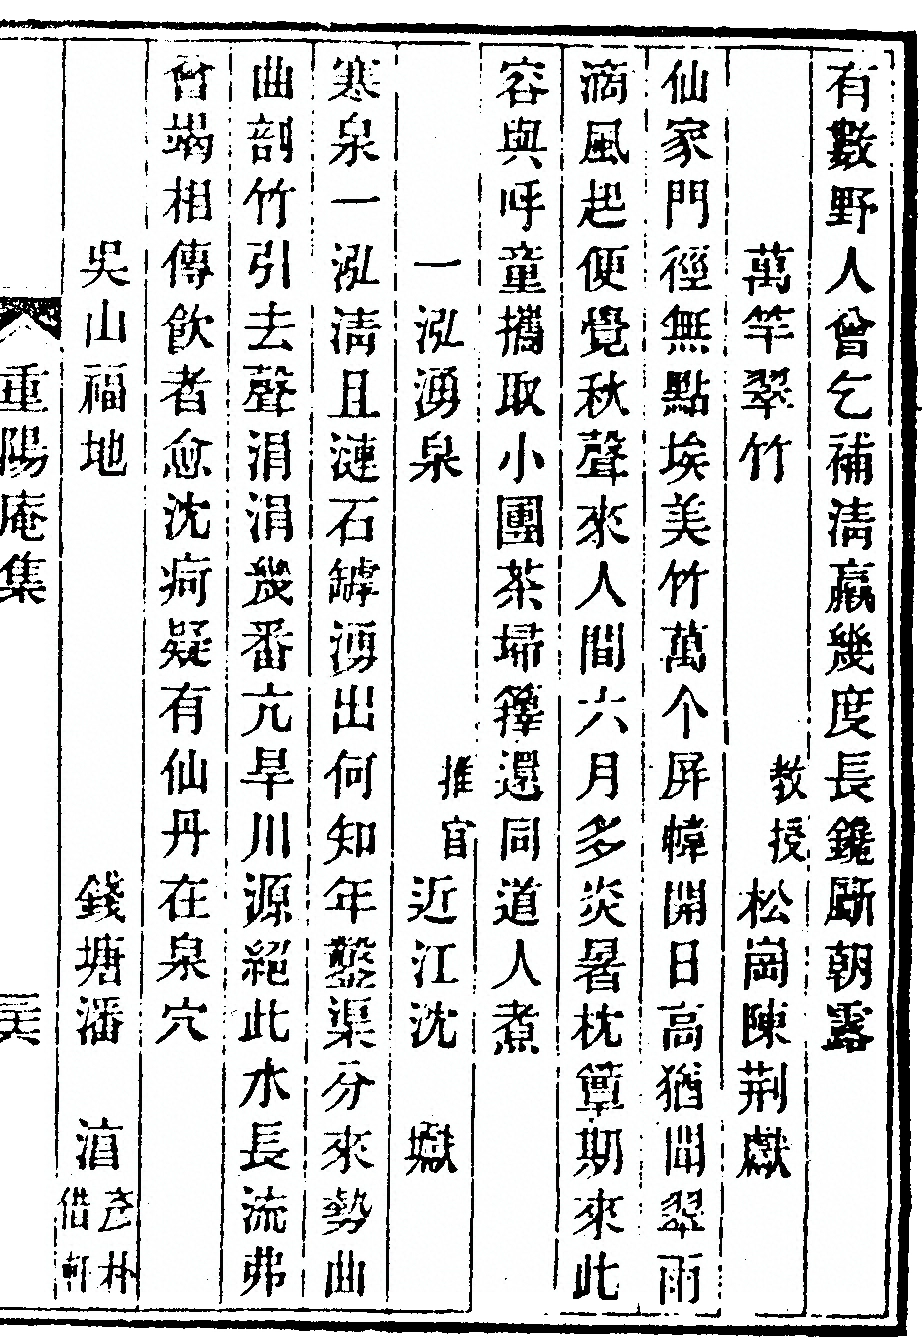 有數野人曾乞補清羸幾度長鑱斸朝露
萬竿翠竹 教授松岡陳荆獻
仙家門徑無點埃美竹萬个屏幃開日高猶聞翠雨
滴風起便覺秋聲來人間六月多炎暑枕簟期來此
容與呼童攜取小團茶埽籜還同道人煮
一泓湧泉 推官近江沈
寒泉一泓清且漣石罅湧出何知年鑿渠分來勢曲
曲剖竹引去聲涓涓幾番亢旱川源絕此水長流弗
曾竭相傳飲者愈沈疴疑有仙丹在泉穴
吳山福地 錢塘潘 彦朴借軒
重陽庵集